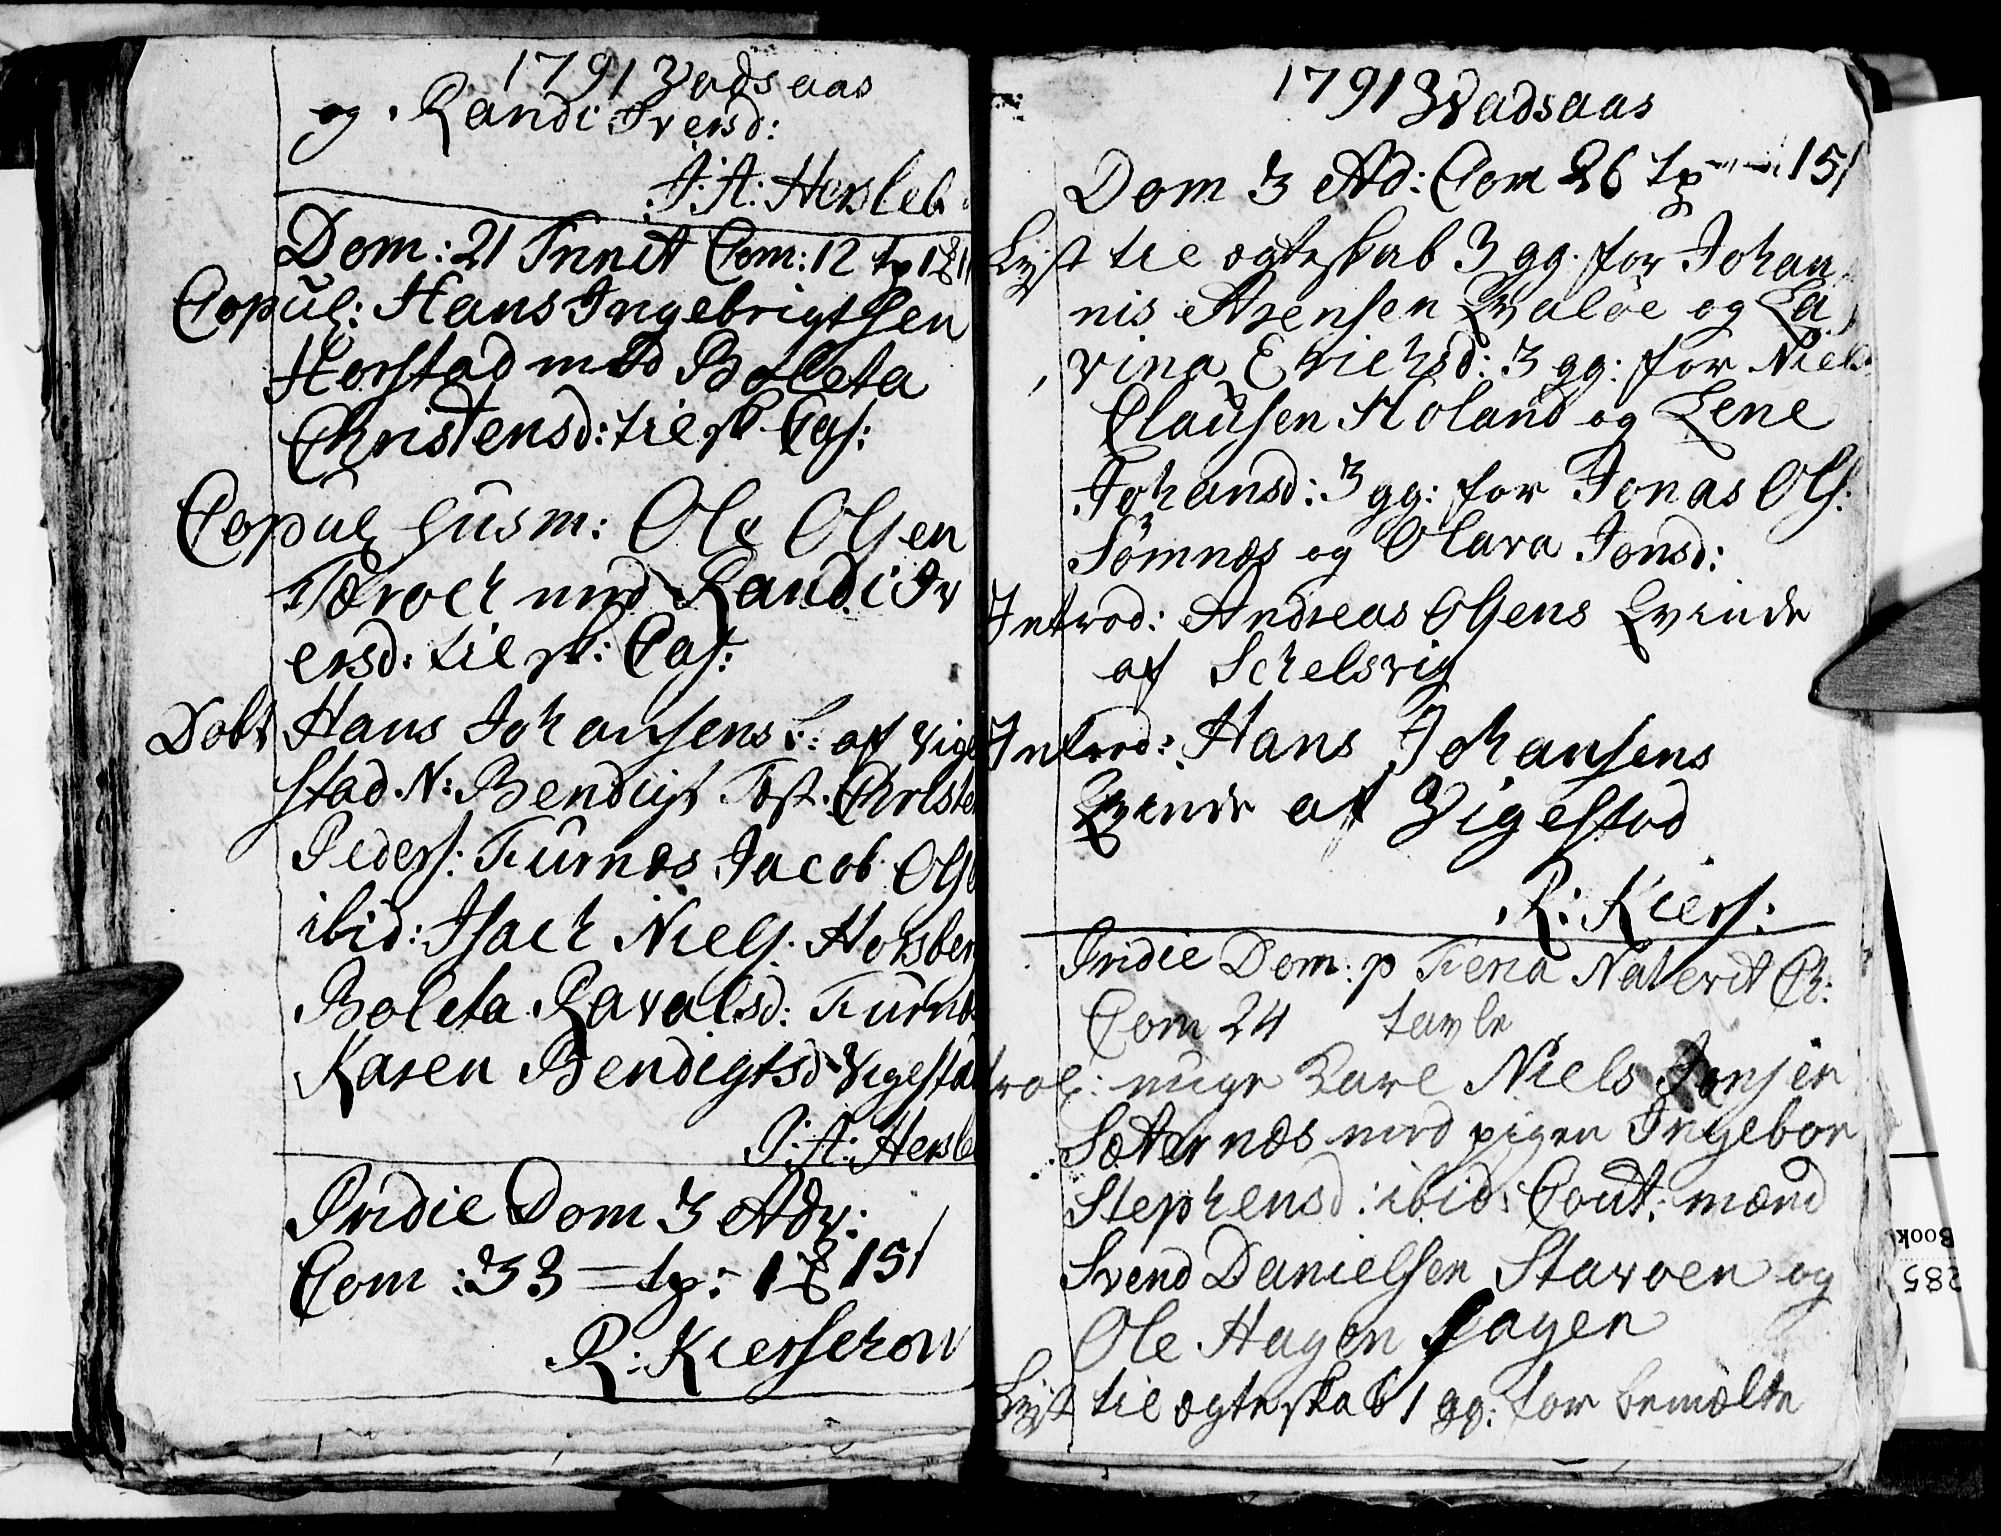 1791 Vadsaas
og Randi Iversd:
J: A: Hersleb
Dom: 21 Trinit Com: 12 tp 1
Copul: Hans Ingebrigtsen
Horstad med Boleta
Christensd: til sk. Cas:
Copul husm: Ole Olsen
Tærvoch med Randi Iv
ersd: til sk: Cas:
Døbt Hans Johansens b: af Vige
stad N: Bendigt Test. Christen
Peders: Turnes Jacob Ols
ibid: Isach Niels. Horsberg
Boleta Ravalsd: Turnes
Karen Bendigtsd Vigestad
J: A: Hersle
Pridie Dom 3 Adv:
Com: 33 = tp: 1 15
R: Kierschow
1791 Vadsaas
Dom 3 Ad: Com 26 tp 15
Lyst til ægteskab 3 gg. for Johan
nis Arensen Qvaløe og La
vina Erichsd: 3 gg: for Niels
Clausen Holand og Lene
Johansd: 3 gg: for Jonas Ols:
Sømnes og Olava Jonsd:
Introd: Andreas Olsens Qvinde
af Schelsvig
Introd: Hans Johansens
Qvinde af Vigestad
R: Kiers:
Pridie Dom: p Feria Nativit Ch:
Com 24 tavle
trol: unge Karl Niels Jonsen
Sæternes med pigen Ingebor
Stephensd: ibid: Caut: mænd
Svend Danielsen Starvoen og
Ole Hagen Hagen
Lyst til ægteskab 1 gg: for bemelte
Book
285